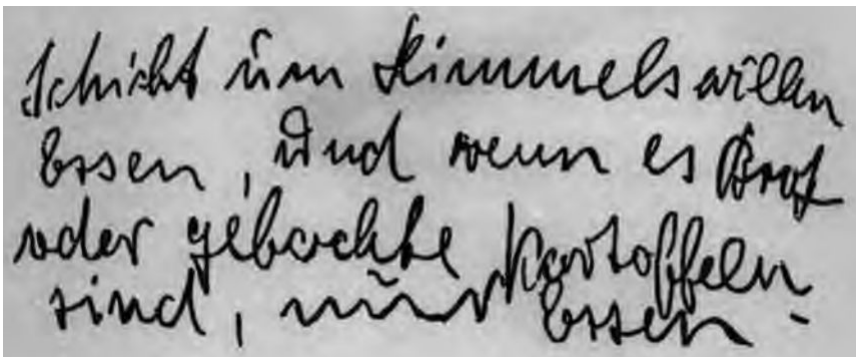 Schickt um Himmels willen
Essen, Und wenn es Brot
oder gebackte Kartoffeln
sind, nur Essen -